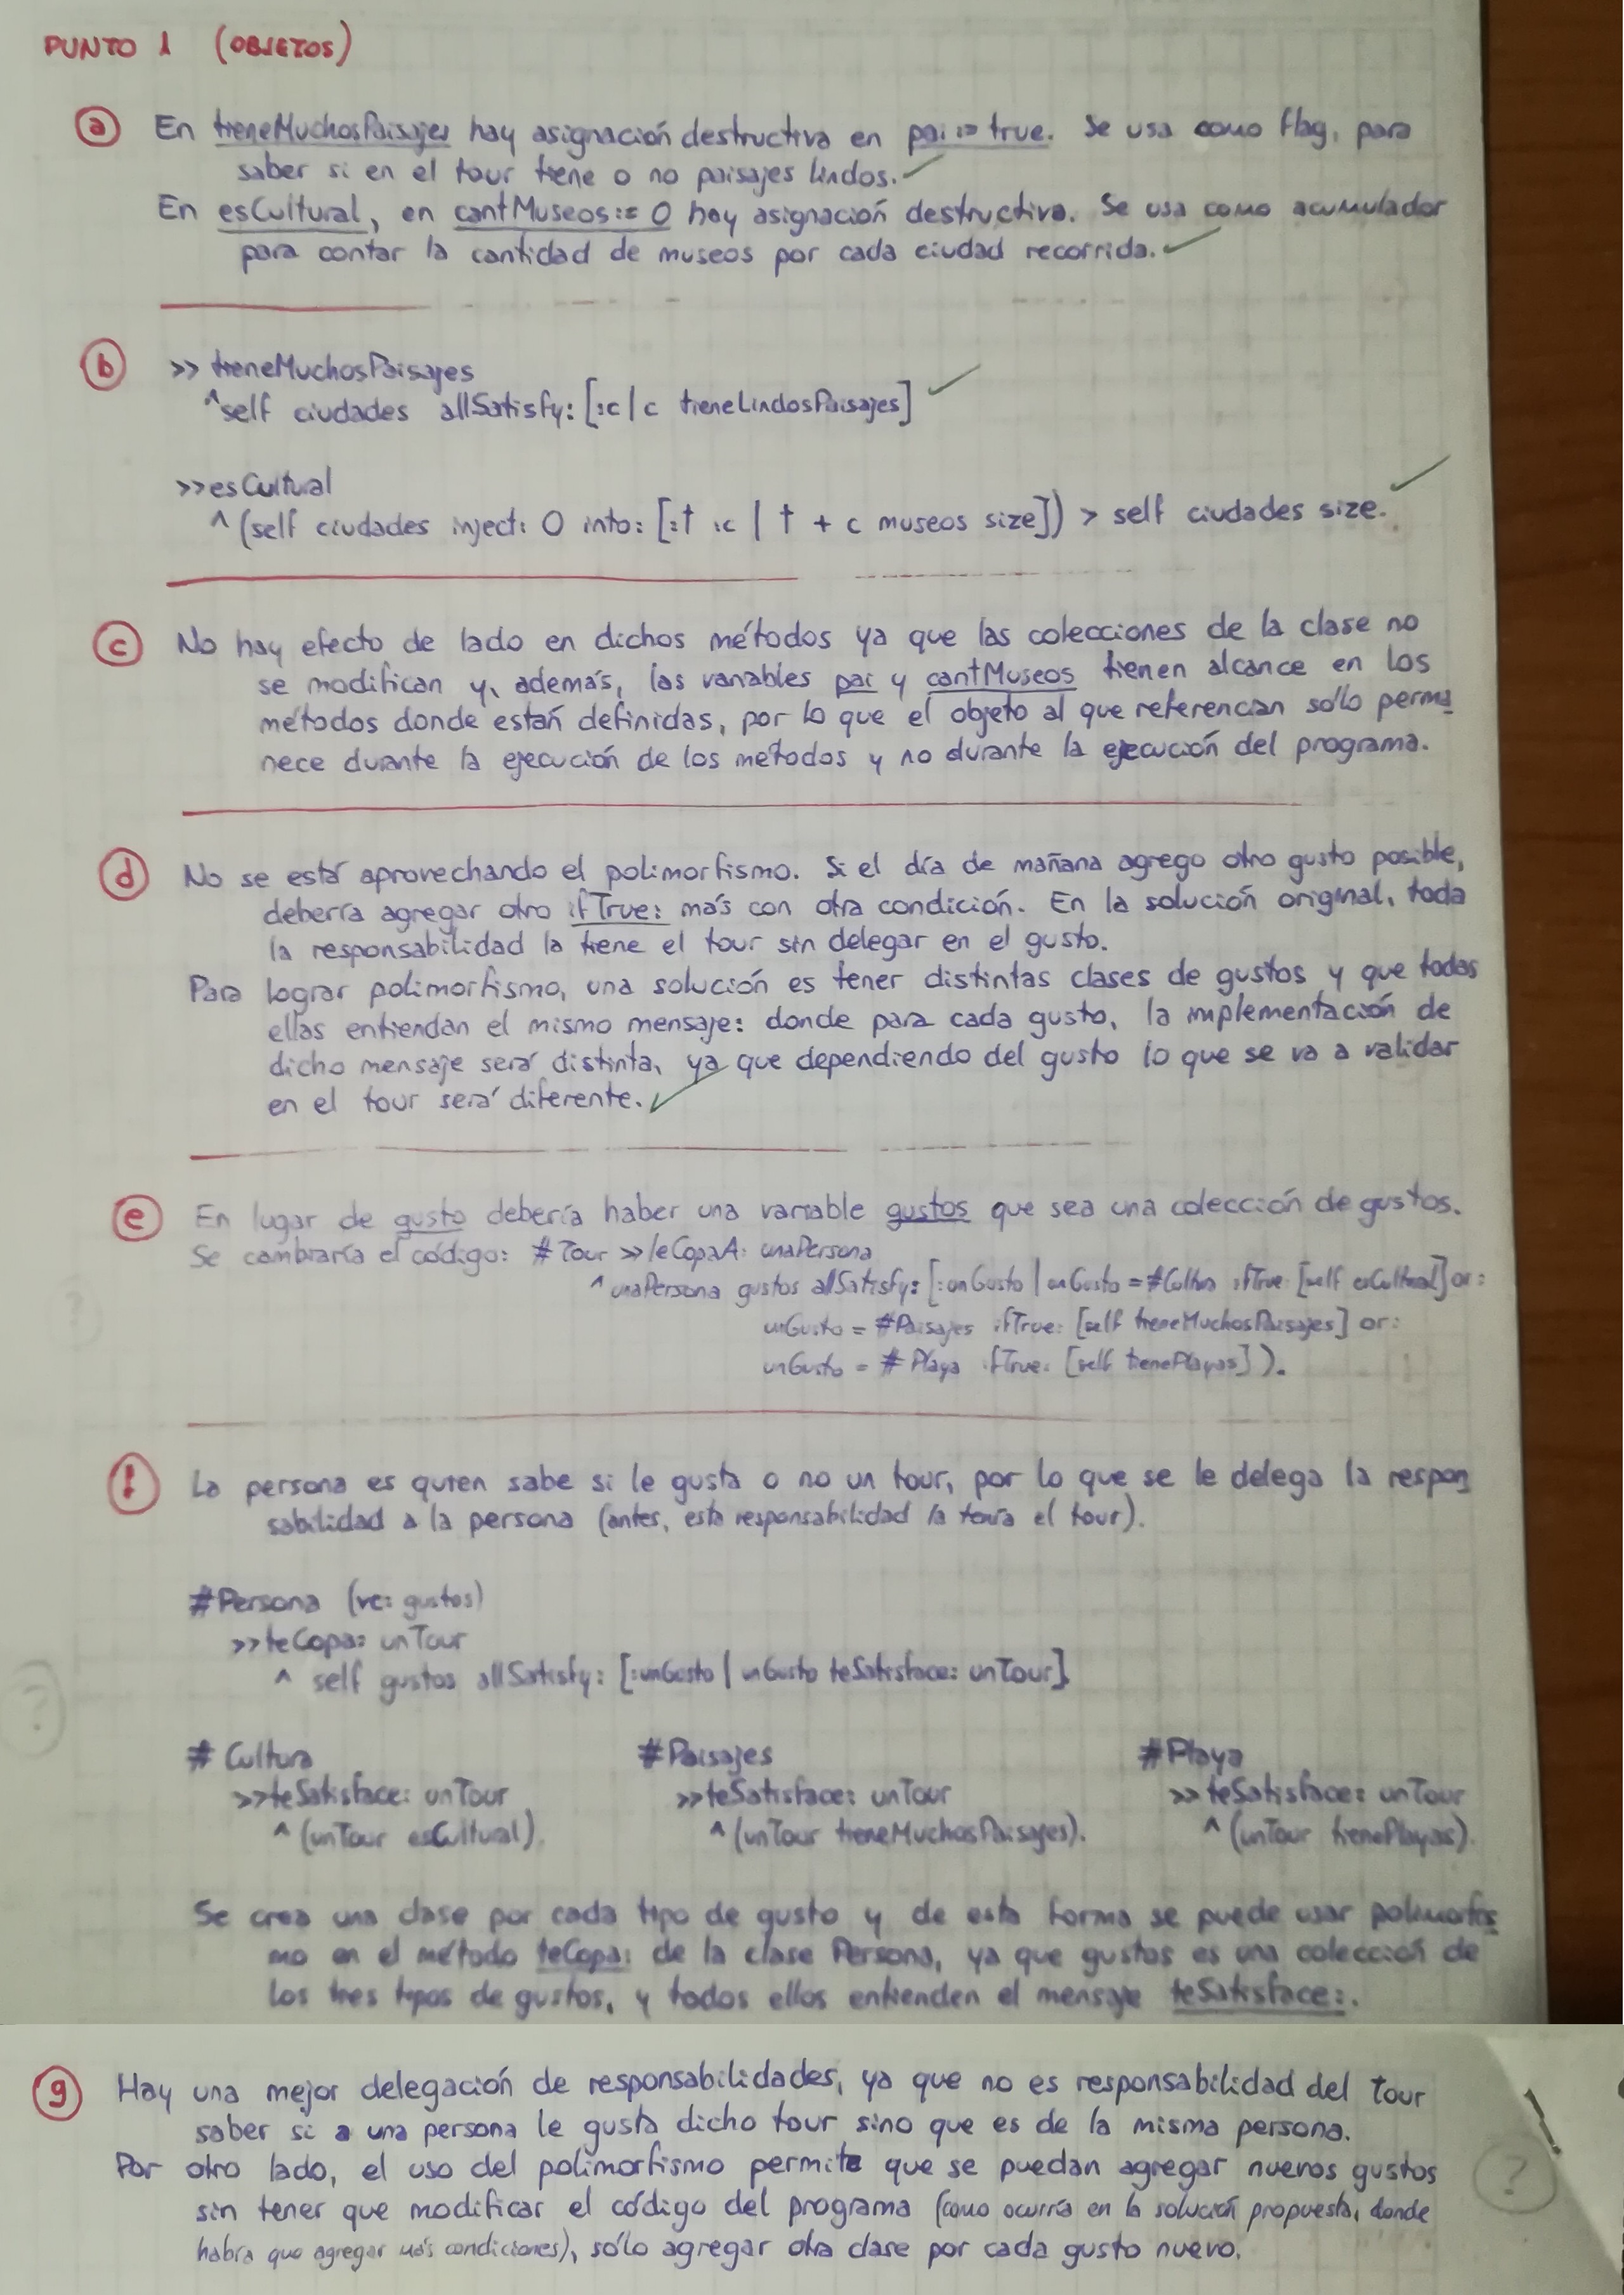 PUNTO 1 (OBJETOS)
a En tieneMuchosPaisajes hay asignación destructiva en pai := true. Se usa como flag, para
saber si en el tour tiene o no paisajes lindos.
En esCultural, en cantMuseos := 0 hay asignación destructiva. Se usa como acumulador
para contar la cantidad de museos por cada ciudad recorrida.
b >> tieneMuchosPaisajes
^self ciudades allSatisfy: [:c | c tieneLindosPaisajes]
>>esCultural
^ (self ciudades inject: 0 into: [:t :c | t + c museos size]) > self ciudades size.
c No hay efecto de lado en dichos métodos ya que las colecciones de la clase no
se modifican y, además, las variables pai y cantMuseos tienen alcance en los
métodos donde están definidas, por lo que el objeto al que referencian sólo perma
nece durante la ejecución de los métodos y no durante la ejecución del programa.
d No se está aprovechando el polimorfismo. Si el día de mañana agrego otro gusto posible,
debería agregar otro ifTrue: más con otra condición. En la solución original, toda
la responsabilidad la tiene el tour sin delegar en el gusto.
Para lograr polimorfismo, una solución es tener distintas clases de gustos y que todas
ellas entiendan el mismo mensaje: donde para cada gusto, la implementación de
dicho mensaje será distinta, ya que dependiendo del gusto lo que se va a validar
en el tour será diferente.
e En lugar de gusto debería haber una variable gustos que sea una colección de gustos.
Se cambiaría el código: #Tour >> leCopaA: unaPersona
^ unaPersona gustos allSatisfy: [:unGusto | unGusto = #Cultura ifTrue: [self esCultural] or:
unGusto = #Paisajes ifTrue: [self tieneMuchosPaisajes] or:
unGusto = #Playa ifTrue: [self tienePlayas]).
f La persona es quien sabe si le gusta o no un tour, por lo que se le delega la respon
sabilidad a la persona (antes, esta responsabilidad la tenía el tour).
#Persona (vi: gustos)
>>teCopa: unTour
^ self gustos allSatisfy: [:unGusto | unGusto teSatisface: unTour]
?
# Cultura #Paisajes #Playa
>>teSatisface: unTour >>teSatisface: unTour >> teSatisface: unTour
^ (unTour esCultural). ^ (unTour tieneMuchosPaisajes). ^ (unTour tienePlayas).
Se crea una clase por cada tipo de gusto y de esta forma se puede usar polimorfis
mo en el método teCopa: de la clase Persona, ya que gustos es una colección de
los tres tipos de gustos, y todos ellos entienden el mensaje teSatisface:.
g Hay una mejor delegación de responsabilidades, ya que no es responsabilidad del tour
saber si a una persona le gusta dicho tour sino que es de la misma persona.
Por otro lado, el uso del polimorfismo permite que se puedan agregar nuevos gustos
sin tener que modificar el código del programa (como ocurría en la solución propuesta, donde
habra que agregar más condiciones), sólo agregar otra clase por cada gusto nuevo.
?